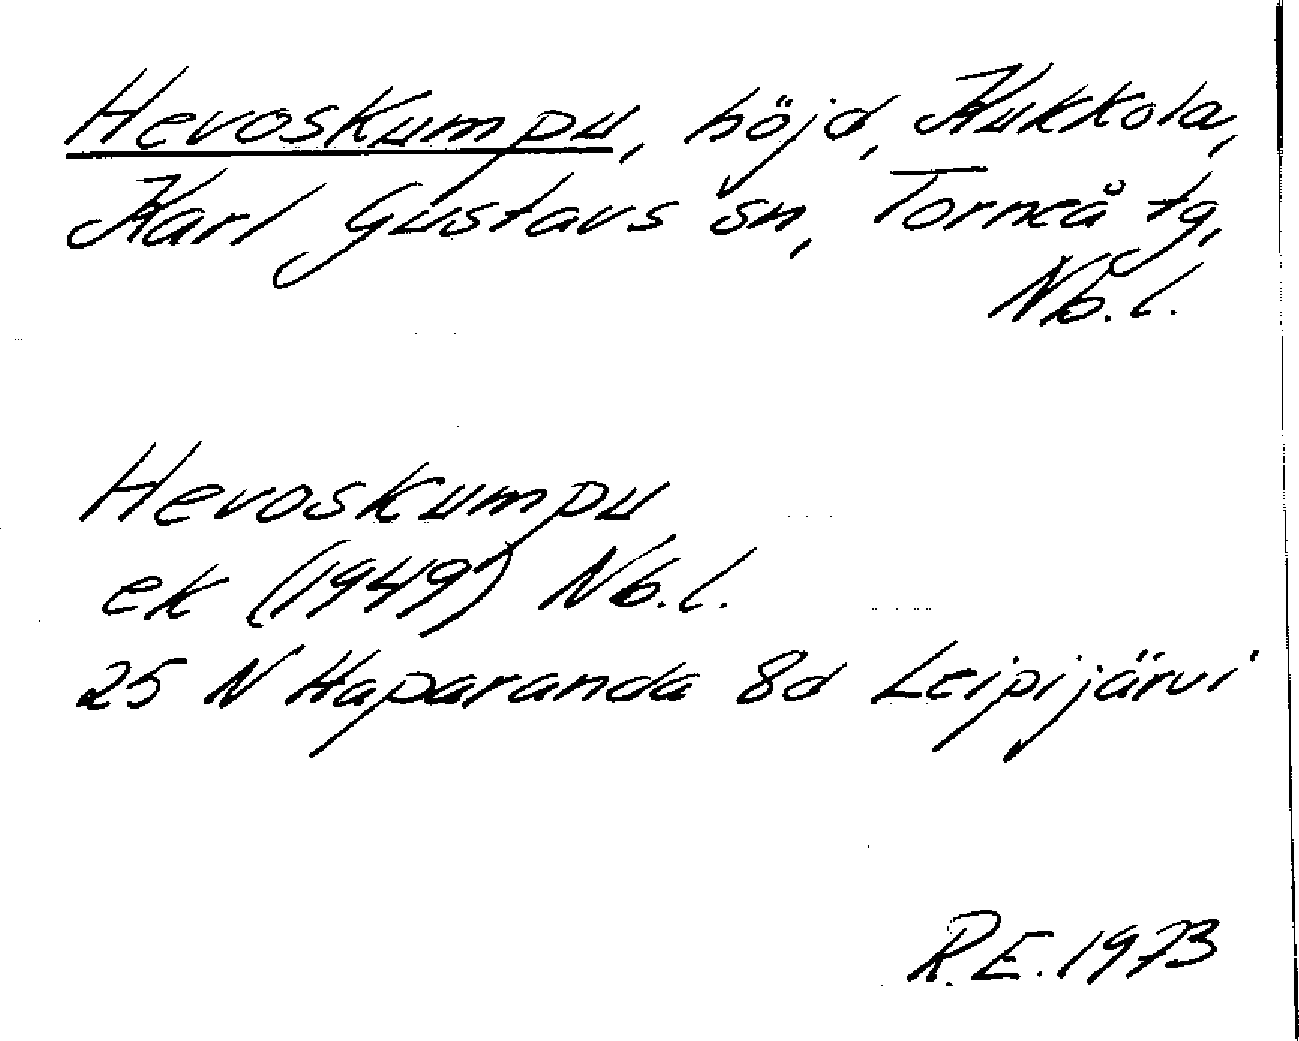 Hevoskumpu, höjd, Kukkola,
Karl Gustavs sn, Torneå tg,
Nb.l.
Hevoskumpu
ek (1949) Nb.l.
25 N Haparanda 8d Leipijärvi
R.E. 1973